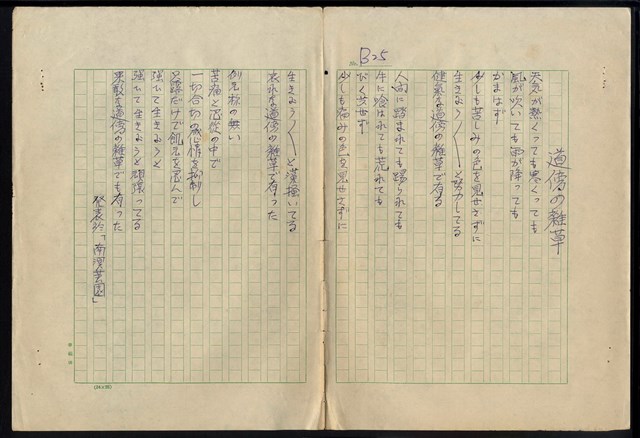 B25
道傍の雑草
天気が熱くっても寒くっても
風が吹いても雨が降っても
かまはず
少しも苦しみの色を見せずに
生きよう/\と努力してる
健気な道傍の雑草で有る
人間に踏まれても蹴られても
牛に喰はれても荒されても
びくともせず
少しも痛みの色を見せずに
生きよう/\と藻掻いてる
哀れな道傍の雑草で有った
例え様の無い
苦痛と忍従の中で
一切合切の感情を抑制し
只露だけで飢えを忍んで
強ひて生きようと
強ひて生きようと頑張ってる
果敢な道傍の雑草でも有った
発表於「南溟芸園」